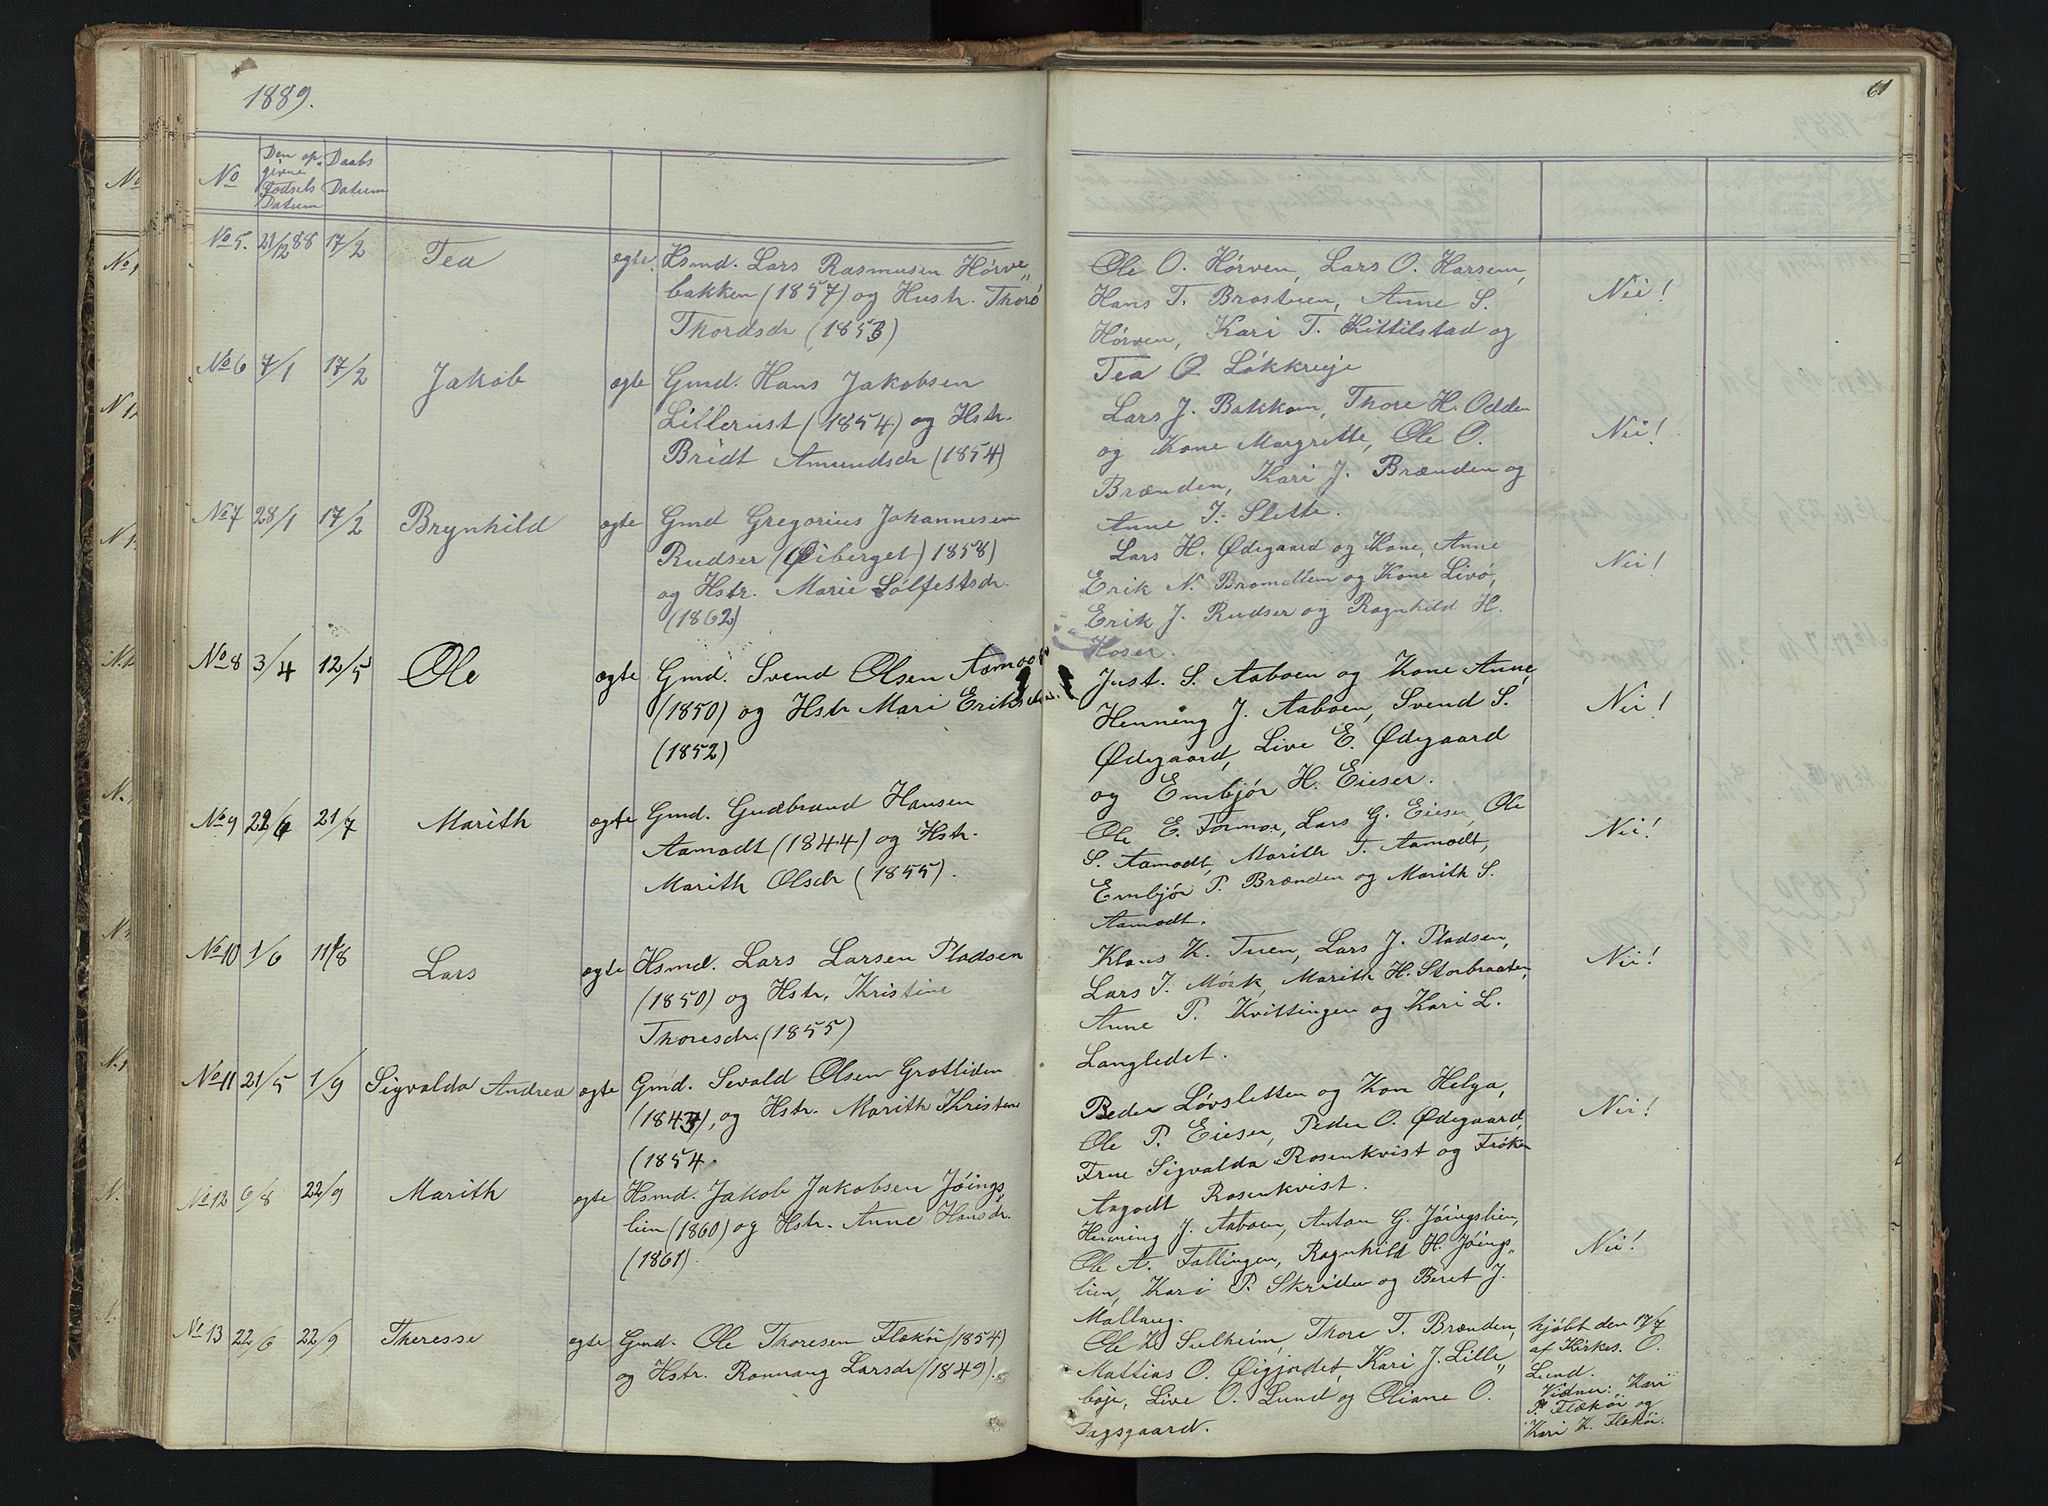 1889.
61
No
Den op-
givne
Fødsels
Datum
Daabs
Datum
No 5. 21/12 88 17/2 Tea ægte. Hsmd. Lars Rasmusen Hørve„
bakken (1857) og Hustr. Thorø
Thordsdr (1853)
Ole O. Hørven, Lars O. Harsem,
Hans T. Brostuen, Anne S.
Hørven, Kari T. Kittilstad og
Tea O. Løkkreije
Nei!
No 6 7/1 17/2 Jakob ægte Gmd. Hans Jakobsen
Lillerust (1854) og Hstr.
Bridt Amundsdr (1854)
Lars J. Bakkom, Thore H. Odden
og Kone Margrette, Ole O.
Brænden, Kari J. Brænden og
Anne I. Slette.
Nei!
No 7 28/1 17/2 Brynhild ægte Gmd Gregorius Johannesen
Rudser (Øiberget) 1858)
og Hstr. Marie Sølfestsdr
(1862)
Lars H. Ødegaard og Kone, Anne
Erik N. Bromillem og Kone Livø,
Erik J. Rudser og Ragnhild H.
Hoser.
Nei!
No 8 3/4 12/5 Ole ægte Gmd. Svend Olsen Aamodt
(1850) og Hstr Mari Eriksdr.
(1852)
Just. S. Aaboen og Kone Anne,
Henning J. Aaboen, Svend S.
Ødegaard, Live E. Ødegaard
og Embjør H. Eieser.
Nei!
No 9 22/6 21/7 Marith ægte Gmd. Gudbrand Hansen
Aamodt (1844) og Hstr.
Marith Olsdr (1855).
Ole E. Formoe, Lars G. Eieser, Ole
S. Aamodt, Marith T. Aamodt,
Embjør P. Brænden og Marith S.
Aamodt.
Nei!
No 10 1/6 11/8 Lars ægte Hsmd. Lars Larsen Pladsen
(1850) og Hstr. Kristine
Thoresdr. (1855)
Klaus K. Tuen, Lars J. Pladsen,
Lars J. Mørk, Marith H. Storbraaten,
Anne P. Kvittingen og Kari L.
Langledet.
Nei!
No 11 21/5 1/9 Sigvalda Andrea ægte Gmd. Sevald Olsen Grotliden
(1843), og Hstr. Marith Kristens
(1854.
Peder Løvsletten og Kon Helga,
Ole P. Eieser, Peder O. Ødegaard,
Frue Sigvalda Rosenkvist og Frøken
Aagodt Rosenkvist.
Nei!
No 12 6/8 22/9 Marith ægte Hsmd. Jakob Jakobsen Jøings„
lien (1860) og Hstr. Anne Hansdr.
(1861)
Henning J. Aaboen, Anton G. Jøingslien,
Ole A. Fallingen, Ragnhild H. Jøings„
lien, Kari P. Skriden og Beret J.
Mollaug.
Nei!
No 13 22/6 22/9 Theresse ægte Gmd. Ole Thoresen Flækøi (1854)
og Hstr. Ronnaug Larsdr (1849).
Ole K. Sulheim, Thore T. Brænden,
Mattias O. Øigjordet, Kari J. Lille„
bøje, Live O. Lund og Oliane O.
Dagsgaard.
hjdbt den 17/7
af Kirkes. O.
Lund.
Vidner: Kari
P. Flækøi og
Kari K. Flækøi.